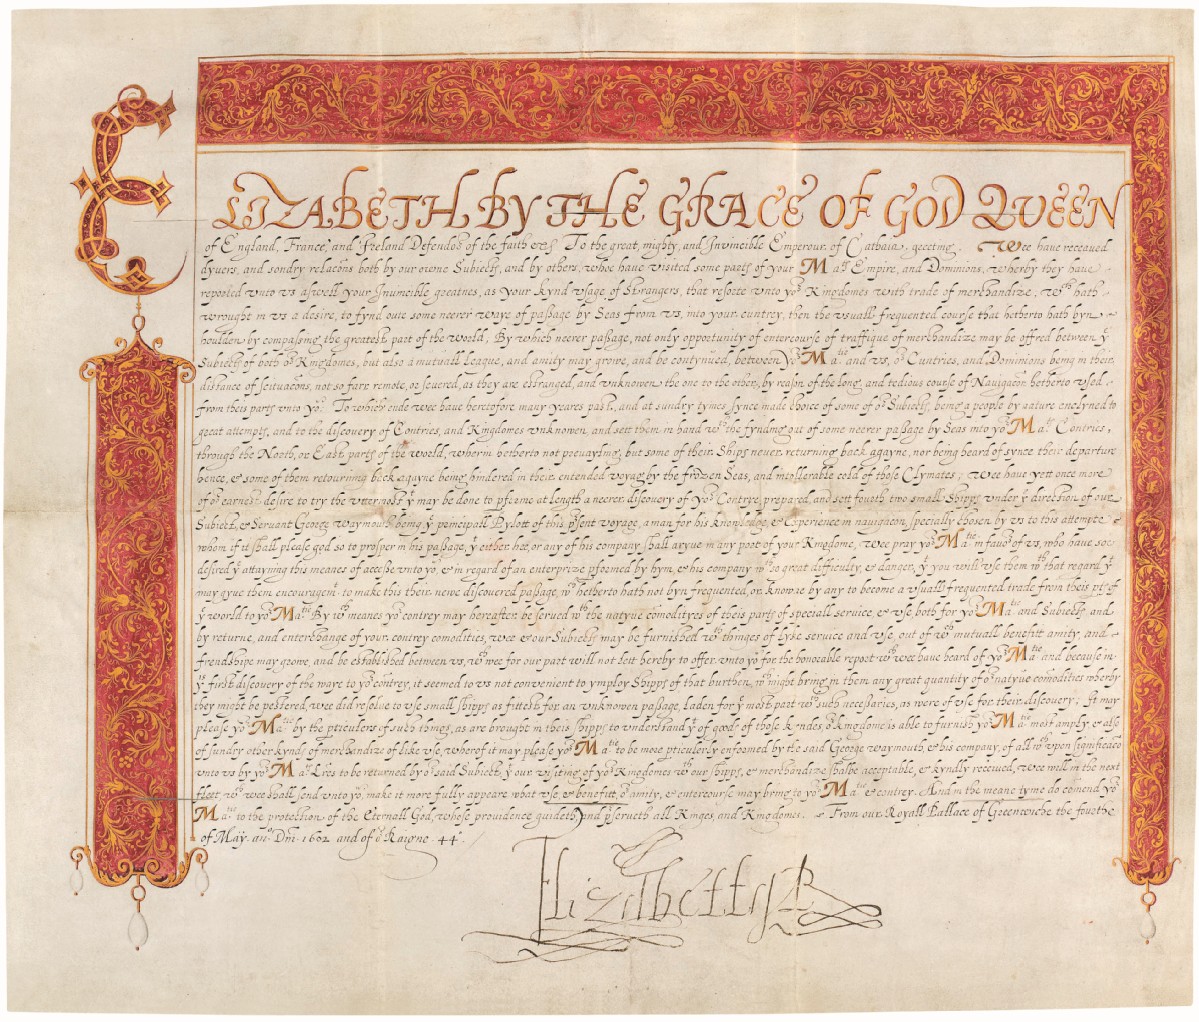 ELIZABETH BY THE GRACE OF GOD QUEEN
of England, France, and Ireland Defendor of the faith etc. To the great, mighty, and Invincible Emperour of Cathaia, greeting. Wee have receaued
dyvers, and sondry relacõns both by our owne Subiects, and by others, whoe have visited some parts of your Matˢ Empire, and Dominions, wherby they have
reported vnto vs aswell your Invincible greatnes, as your kynd vsage of Strangers, that resorte vnto yoʳ Kingdomes with trade of merchandize, wᶜʰ hath
wrought in vs a desire, to fynd oute some neerer waye of passage by Seas from vs, into your cuntrey, then the vsuall frequented course that hetherto hath byn
houlden by compassing the greatest part of the world, By which neerer passage, not only opportunity of entercourse of traffique of merchandize may be offred between yᵉ
Subiects of both oʳ Kingdomes, but also a mutuall league, and amity may growe, and be contynued, between yoʳ Maᵗⁱᵉ and vs, oʳ Cuntries, and Dominions being in their
distance of scituacõns, not so farr remote, or severed, as they are estranged, and vnknowen the one to the other, by reason of the long, and tedious course of Navigacõn hetherto vsed
from theis parts vnto yoᵘ. To which ende wee have heretofore many yeares past, and at sundry tymes synce made choice of some of oʳ Subiects, being a people by nature enclyned to
great attempts, and to the discovery of Contries, and Kingdomes vnknowen, and sett them in hand wᵗʰ the fynding out of some neerer passage by Seas into yoʳ Maᵗˢ Contries,
through the North, or East parts of the world, wherin hetherto not prevayling, but some of their Ships never returning back agayne, nor being heard of synce their departure
hence, & some of them retourning back agayne being hindered in their entended voyag by the frozen Seas, and intollerable cold of those Clymates; wee have yett once more
of oʳ earnest desire to try the vttermost yᵗ may be done to pforme at length a neerer discovery of yoʳ Contrye, prepared, and sett fourth two small Shipps vnder yᵉ direction of our
Subiect, & Servant George Waymouth being yᵉ principall Pylott of this pʳsent voyage, a man for his knowledge, & experience in navigacõn, specially chosen by vs to this attempte
whom if it shall please god so to prosper in his passage, yᵗ either hee, or any of his company shall aryve in any port of your Kingdome, wee pray yoʳ Maᵗⁱᵉ in favoʳ of vs, who have soe
desired yᵉ attayning this meanes of accesse vnto yoᵘ, & in regard of an enterprize pformed by hym, & his company wᵗʰ so great difficulty, & danger, yᵗ you will vse them wᵗʰ that regard yᵗ
may gyve them encouragemᵗ to make this their newe discovered passage, wᶜʰ hetherto hath not byn frequented, or knowne by any to become a vsually frequented trade from this pᵗ of
yᵉ world to yoʳ Maᵗⁱᵉ. By wᶜʰ meanes yoʳ contrey may hereafter be served wᵗʰ the natyve comodityes of theis parts of speciall service, & vse, both for yoʳ Maᵗⁱᵉ and Subiects, and
by returne, and enterchange of your contrey comodities, wee & our Subiects may be furnished wᵗʰ thinges of lyke service and vse, out of wᶜʰ mutuall benefitt amity, and
frendshipe may growe, and be established between vs, wᶜʰ wee for our part will not lett hereby to offer vnto yoᵘ for the honorable report wᶜʰ wee have heard of yoʳ Maᵗⁱᵉ and because in
yⁱˢ first discovery of the waye to yoʳ contrey, it seemed to vs not convenient to ymploy Shipps of that burthen, wᶜʰ might bring in them any great quantity of oʳ natyve comodities wherby
they might be pestered, wee did resolve to vse small shipps as fittest for an vnknowen passage, laden for yᵉ most part wᵗʰ such necessaries, as were of vse for their discovery; It may
please yoʳ Maᵗⁱᵉ by the pticulers of such things, as are brought in theis shipps to vnderstand yᵗ of goods of those kyndes, oʳ kingdome is able to furnish yoʳ Maᵗⁱᵉ most amply & also
of sundry other kynds of merchandize of like vse, wherof it may please yoʳ Maᵗⁱᵉ to be more pticulerly enformed by the said George Waymouth, & his company, of all wᶜʰ vpon significacõn
vnto vs by yoʳ Maᵗˢ Lrẽs to be returned by oʳ said Subiect, yᵗ our visiting of yoʳ Kingdomes wᵗʰ our shipps, & merchandize shalbe acceptable, & kyndly received, wee will in the next
fleet, wᶜʰ wee shall send vnto yoᵘ, make it more fully appeare what vse, & benefitt, oʳ amity, & entercourse may bring to yoʳ Maᵗⁱᵉ & contrey. And in the meane tyme do comend yoʳ
Maᵗⁱᵉ to the protection of the Eternall God, whose providence guideth, and pʳserveth all Kinges and Kingdomes. From our Royall Pallace of Greenwiche the fourthe
of May anᵒ Dnĩ 1602 and of oʳ Raigne 44ᵒ.
Elizabeth R